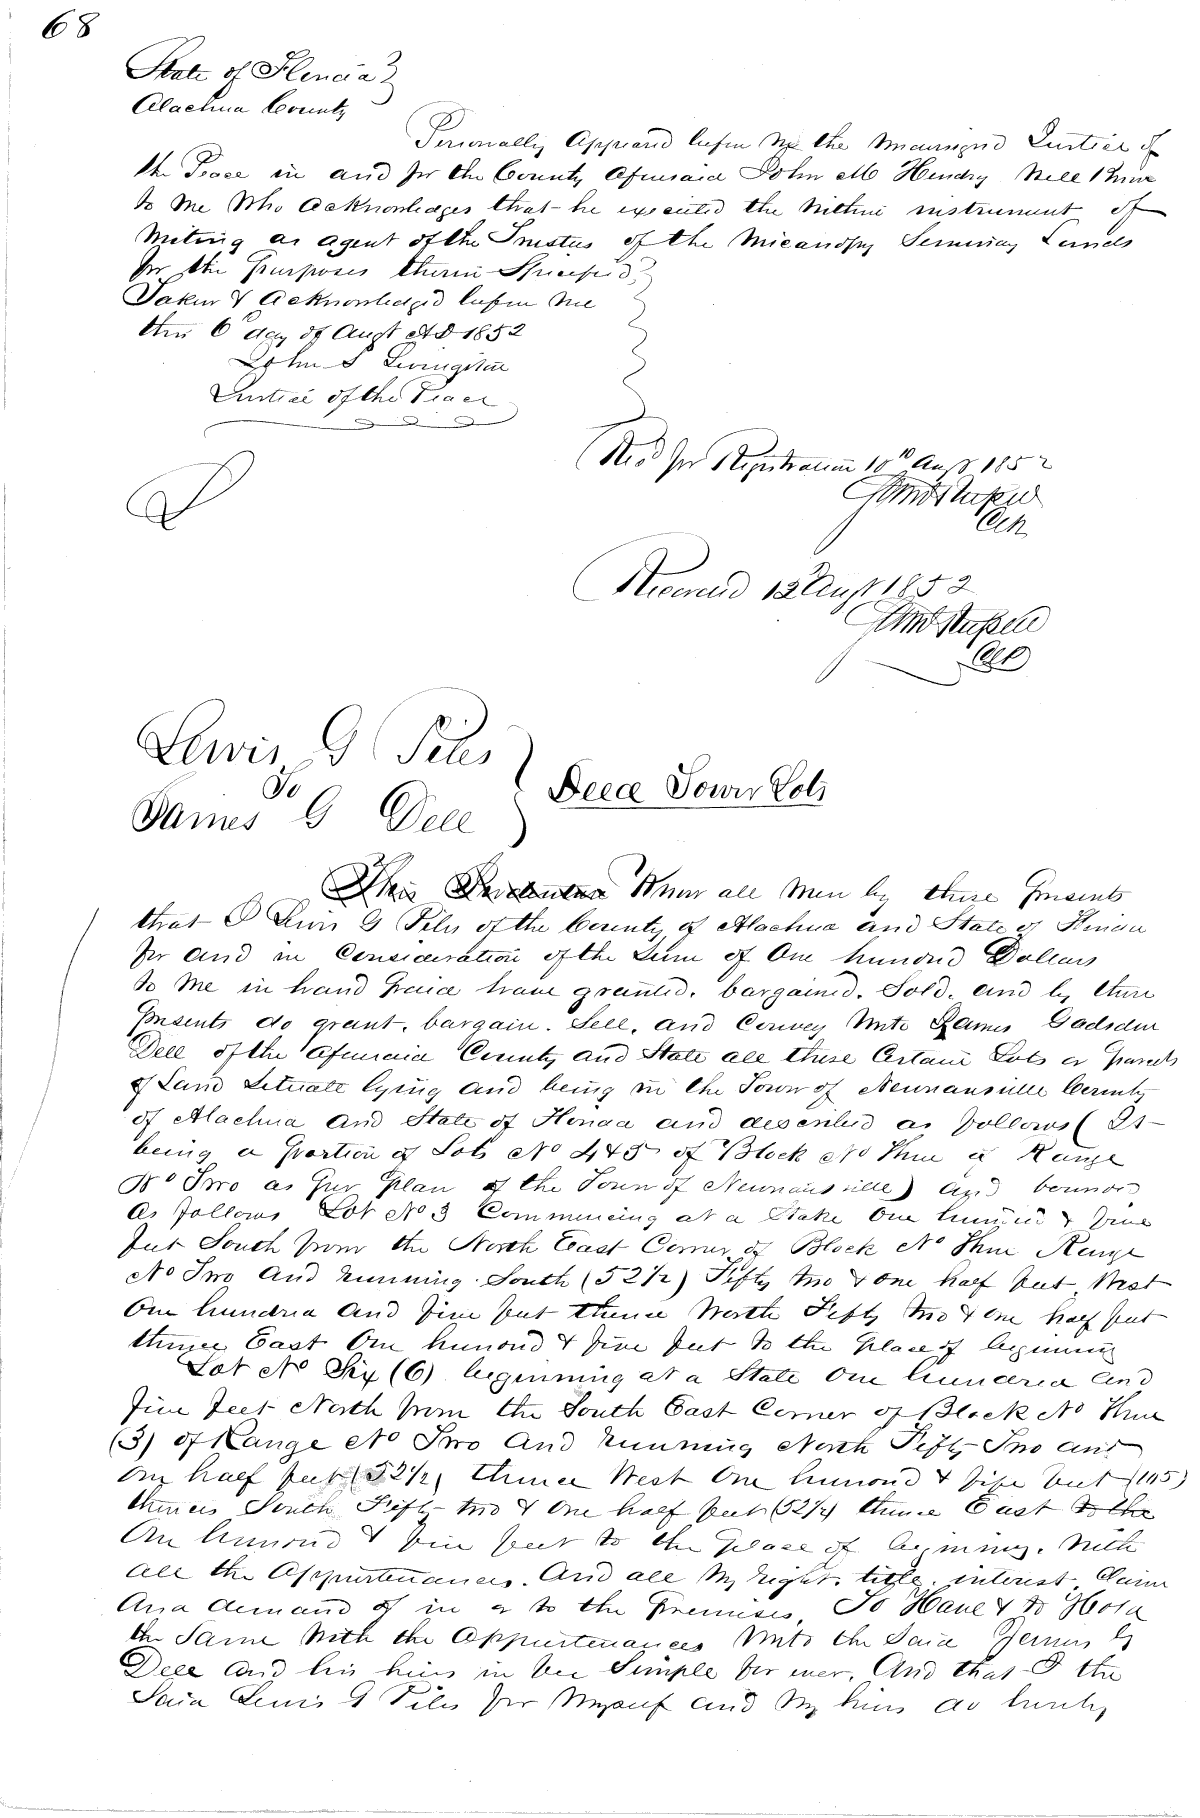 68
State of Florida
Alachua County
Personally Appeared before Me the undersigned Justice of
the Peace in and for the County Aforesaid John M Hendry Well Known
to Me Who acknowledges that he executed the Within instrument of
Writing as agent of the Trustees of the Micanopy Seminary Lands
for the purposes therein Specified
Taken & Acknowledged before me
this 6 day of Augt AD 1852
John S Livingston
Justice of the Peace
Recd for Registration 10th Augt 1852
Clk
Recorded 12 Augt 1852
Clk
Lewis G Piles
To
James G Dell
Deed Town Lots
This Indenture Know all Men by these presents
that I Lewis G Piles of the County of Alachua and State of Florida
for and in Consideration of the Sum of One hundred Dollars
to Me in hand paid have granted. bargained. Sold. and by these
presents do grant. bargain. Sell. and Convey Unto James Gadsden
Dell of the aforesaid County and State all those Certain Lots or parcels
of Land Situate lying and being in the Town of Newnansville County
of Alachua and State of Florida and described as follows ( It
being a portion of Lots No 4 & 5 of Block No Three of Range
No Two as per Plan of the Town of Newnansville) and bounded
as follows Lot No 3 Commencing at a Stake One hundred & five
feet South from the North East Corner of Block No Three Range
No Two and running South (52 1/2) Fifty two & one half feet West
One hundred and five feet thence North Fifty two & one half feet
thence East One hundred & five feet to the place of beginning
Lot No Six (6) beginning at a Stake One hundred and
five feet North from the South East Corner of Block No Three
(3) of Range No Two and running North Fifty Two and
one half feet (52 1/2) thence West One hundred & five feet (105)
thence South Fifty two & One half feet (52 1/2) thence East to the
One hundred & five feet to the place of beginning. With
all the Appurtenances. And all My right. title. interest. Claim
And demand of in or to the Premises, To Have & to Hold
the Same With the Appurtenances Unto the Said James G
Dell and his heirs in fee Simple for ever. And that I the
Said Lewis G Piles for Myself and My heirs do hereby